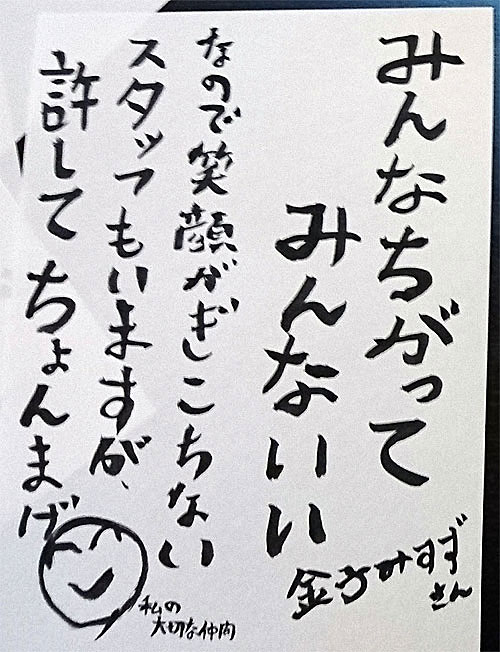 みんなちがって
みんないい
金子みすずさん
なので笑顔がぎこちない
スタッフもいますが、
許してちょんまげ
私の
大切な仲間